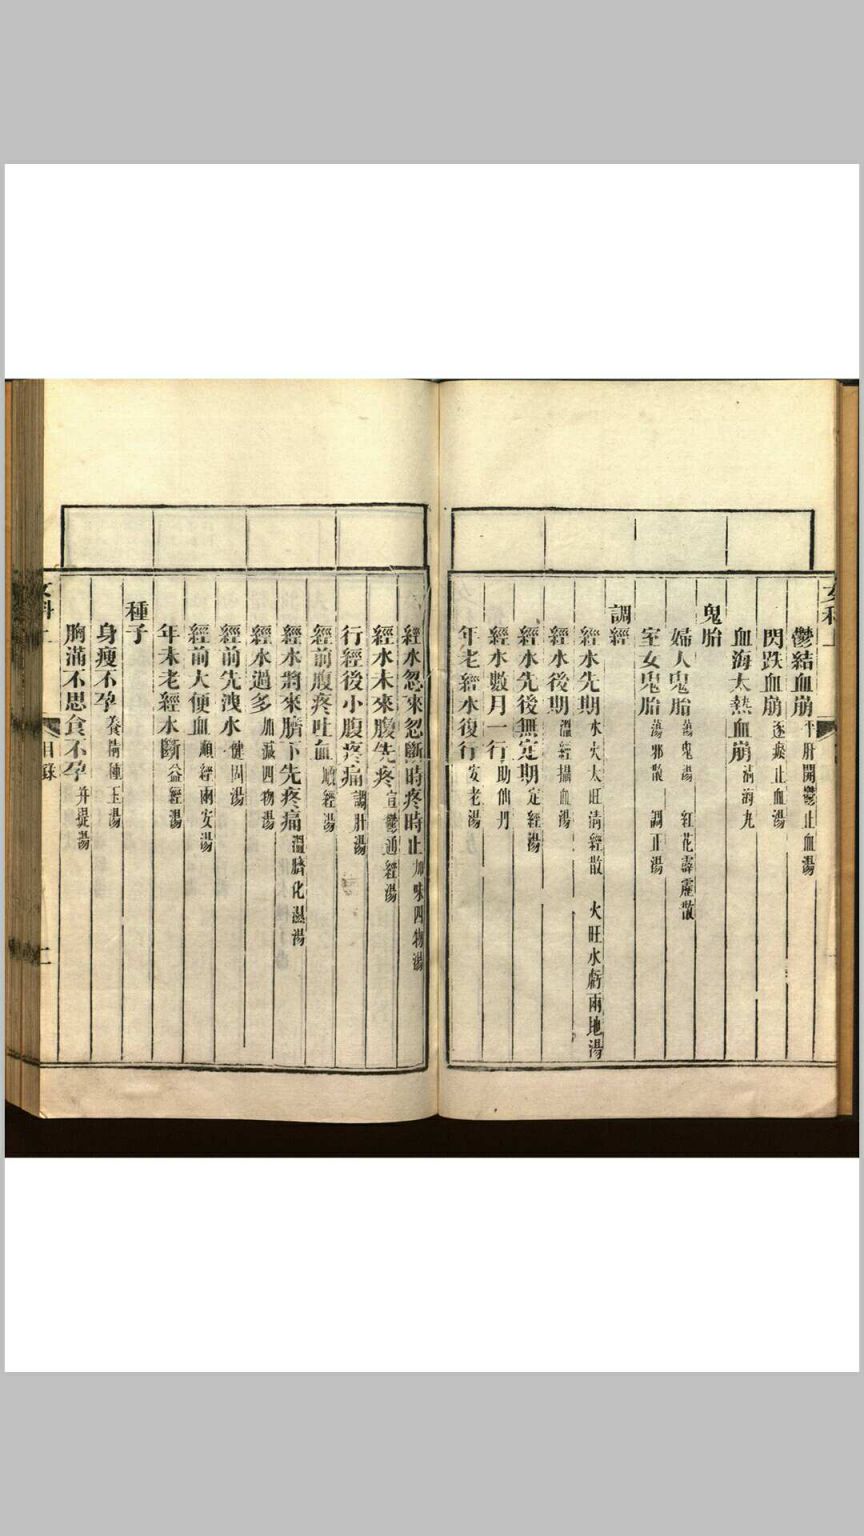 鬱結血崩 平肝開鬱止血湯
閃跌血崩 逐瘀止血湯
血海太熱血崩 清海丸
鬼胎
婦人鬼胎 蕩鬼湯 紅花霹靂散
室女鬼胎 蕩邪散 調正湯
調經
經水先期 水火太旺清經散 火旺水虧兩地湯
經水後期 溫經攝血湯
經水先後無定期 定經湯
經水數月一行 助仙丹
年老經水復行 安老湯
經水忽來忽斷時疼時止 加味四物湯
經水未來腹先疼 宣鬱通經湯
行經後小腹疼痛 調肝湯
經前腹疼吐血 順經湯
經水將來臍下先疼痛 溫臍化濕湯
經水過多 加減四物湯
經前先洩水 健固湯
經前大便血 順經兩安湯
年未老經水斷 益經湯
種子
身瘦不孕 養精種玉湯
胸滿不思食不孕 并提湯
目錄
二